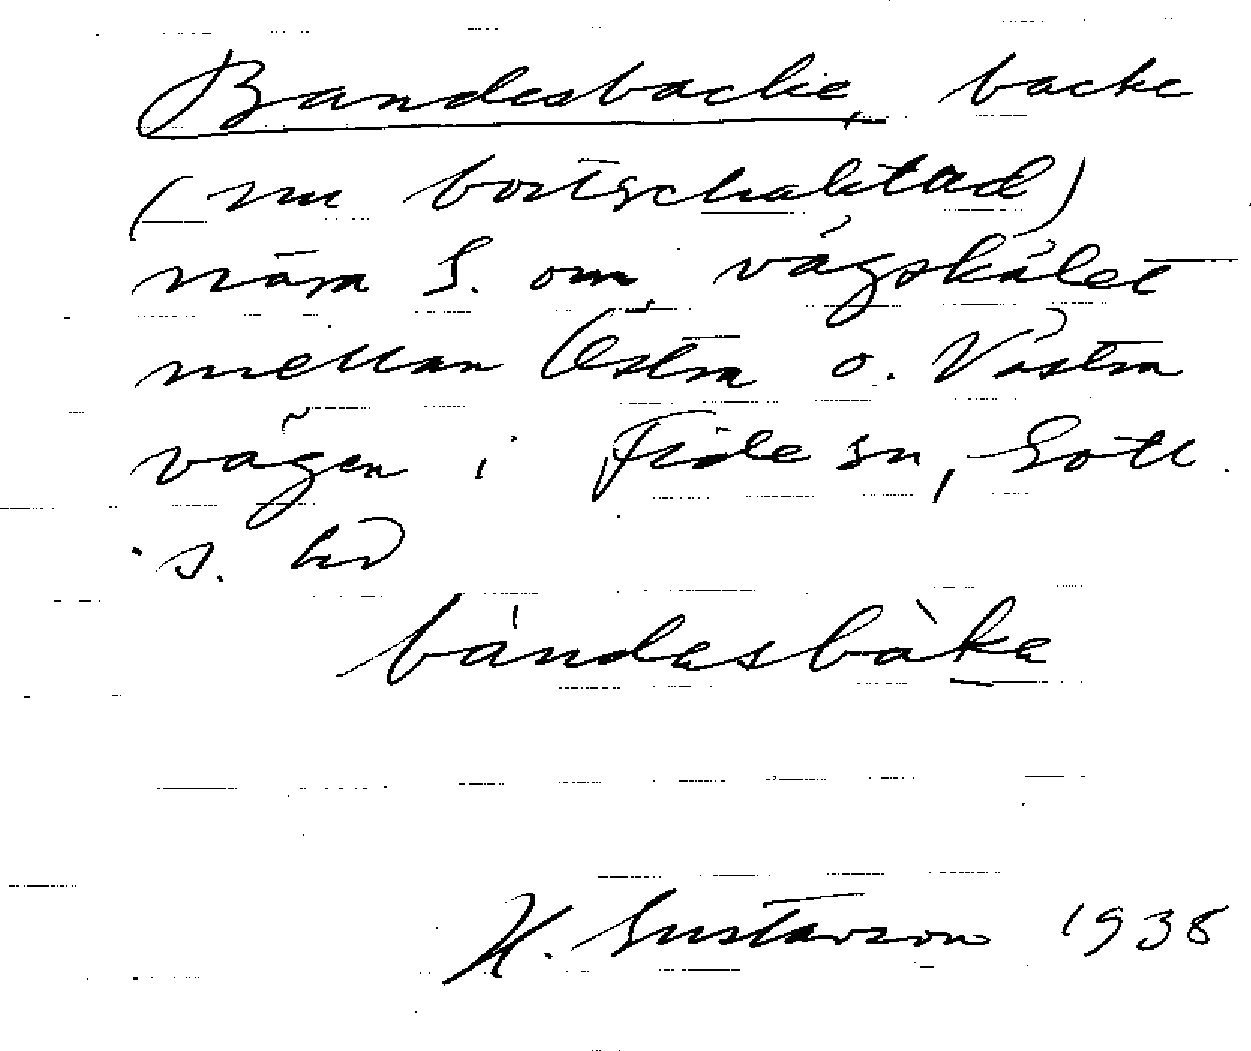 Bandesbacke, backe
(nu bortschaktad)
nära S. om vägskälet
mellan Östra o. Västra
vägen i Fide sn, Gotl.
s. hd
bándasbàka
H. Gustavson 1938